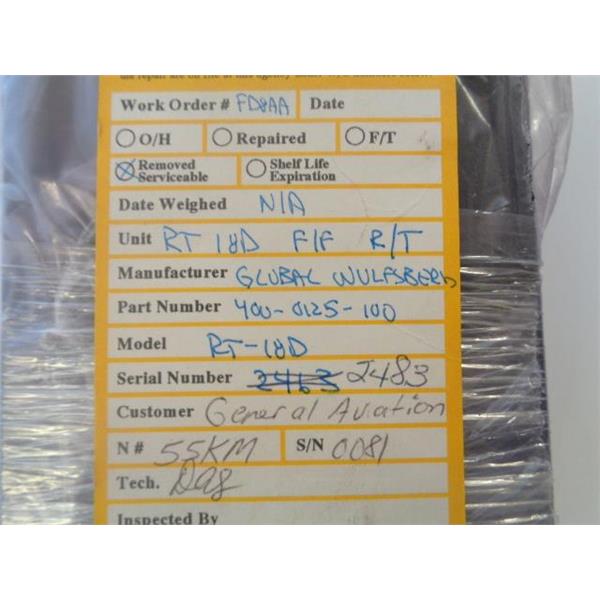 Work Order # FD8AA Date
O/H Repaired F/T
Removed Serviceable Shelf Life Expiration
Date Weighed N/A
Unit RT 18D F/F R/T
Manufacturer GLOBAL WULFSBERG
Part Number 400-0125-100
Model RT-18D
Serial Number 2463 2483
Customer General Aviation
N# 55KM S/N 0081
Tech.
Inspected By